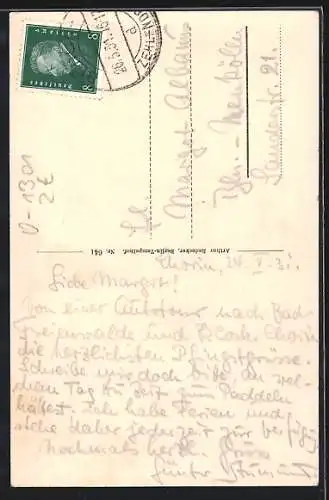 Chorin, 24. V. 31.
Liebe Margot!
Von einer Autotour nach Bad
Freienwalde und Kloster Chorin
die herzlichsten Pfingstgrüsse.
Schreibe mir doch bitte an wel-
chem Tag du Zeit zum Paddeln
hättest. Ich habe Ferien und
stehe daher jederzeit zur Verfügung
Nochmals herzl. Gruss
Günter
Arthur Redecker, Berlin-Tempelhof. Nr. 641
Frl.
Margot Albam
Bln.-Neukölln
Sanderstr. 21.
Deutsches Reich
8
8
V-1301
2€